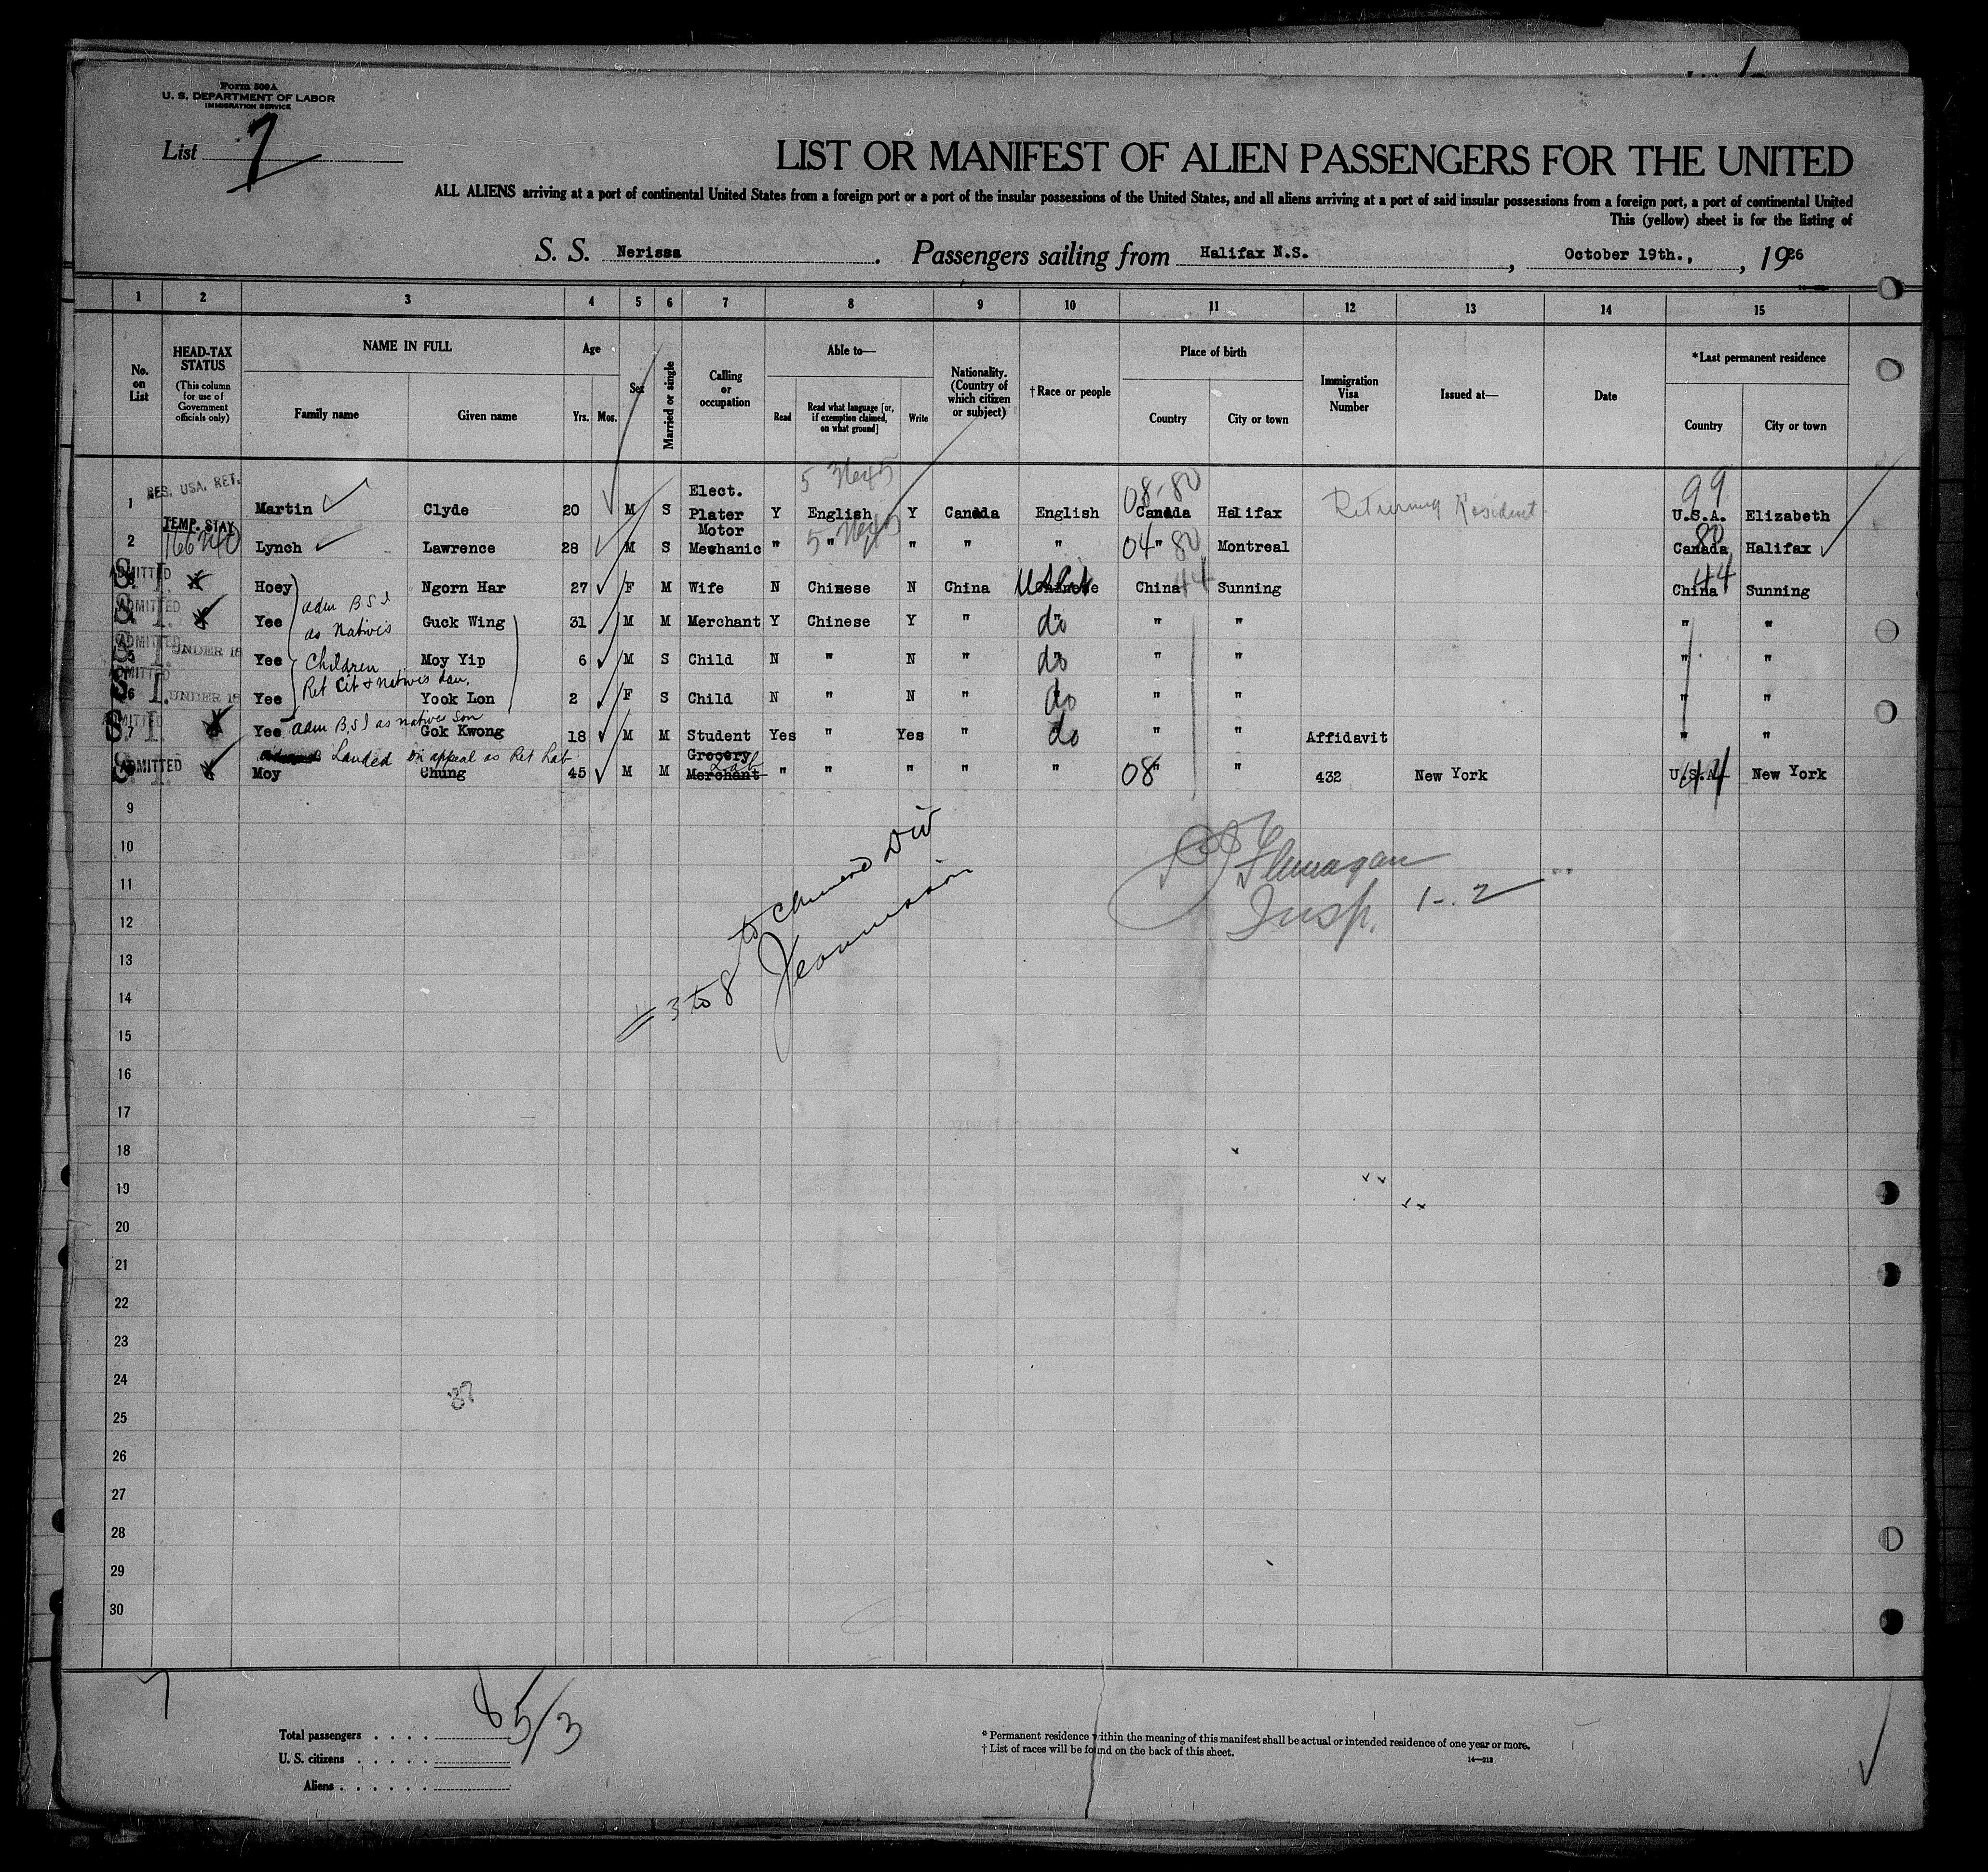 Form 500A
U. S. DEPARTMENT OF LABOR
IMMIGRATION SERVICE
List 7
LIST OR MANIFEST OF ALIEN PASSENGERS FOR THE UNITED
ALL ALIENS arriving at a port of continental United States from a foreign port or a port of the insular possessions of the United States, and all aliens arriving at a port of said insular possessions from a foreign port, a port of continental United
This (yellow) sheet is for the listing of
S. S. Nerissa . Passengers sailing from Halifax N.S. , October 19th., , 1926
1 2 3 4 5 6 7 8 9 10 11 12 13 14 15
No. on List
HEAD-TAX STATUS (This column for use of Government officials only)
NAME IN FULL
Family name
Given name
Age
Yrs. Mos.
Sex
Married or single
Calling or occupation
Able to—
Read
Read what language [or, if exemption claimed, on what ground]
Write
Nationality. (Country of which citizen or subject)
† Race or people
Place of birth
Country
City or town
Immigration Visa Number
Issued at—
Date
*Last permanent residence
Country
City or town
1 RES. USA. RET. Martin Clyde 20 M S Elect. Plater Y English Y Canada English 08-80 Canada Halifax Returning Resident 99 U.S.A. Elizabeth
2 TEMP. STAY Lynch Lawrence 28 M S Motor Mechanic " " " " " 04 " 80 Montreal 80 Canada Halifax
ADMITTED S. I. Hoey Ngorn Har 27 F M Wife N Chinese N China Chinese China 44 Sunning China 44 Sunning
adm B S I
ADMITTED S. I. Yee as Nativis Guck Wing 31 M M Merchant Y Chinese Y " do " " " "
ADMITTED S. I. 5 UNDER 16 Yee Children Moy Yip 6 M S Child N " N " do " " " "
ADMITTED S. I. 6 UNDER 16 Yee Ret Cit & nativis dau. Yook Lon 2 F S Child N " N " do " " " "
ADMITTED S. I. 7 Yee adm B.S.I as natives son Gok Kwong 18 M M Student Yes " Yes " do " " Affidavit " "
Landed on appeal as Ret Lab
ADMITTED S. I. Moy Chung 45 M M Grocery Merchant Lab " " " " " 08 " " 432 New York U.S.A. 44 New York
9
10
11
12
13
14
15
16
17
18
19
20
21
22
23
24
25
26
27
28
29
30
Flanagan
Insp. 1-2
3 to 8 to Chinese Div
87
Total passengers
8 5/3
U. S. citizens
Aliens
* Permanent residence within the meaning of this manifest shall be actual or intended residence of one year or more.
† List of races will be found on the back of this sheet.
14—913